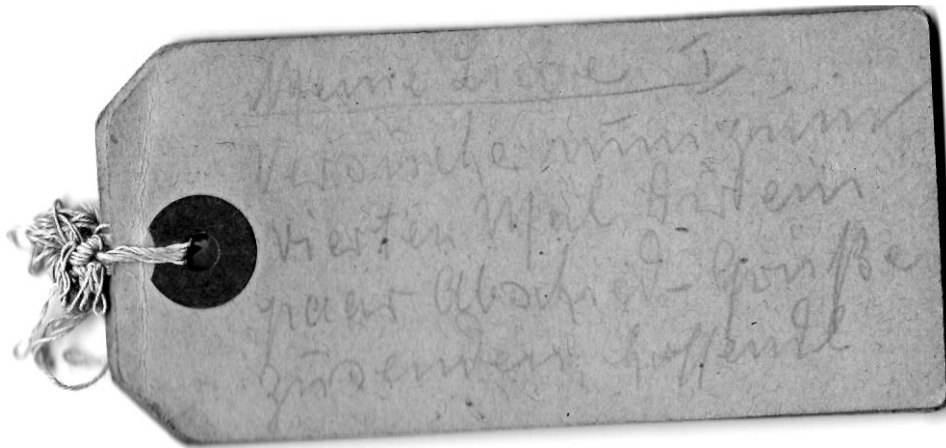 Meine Liebe I
Versuche nun zum
vierten Mal Dir ein
paar Abschied-Grüße
zusenden hoffentl